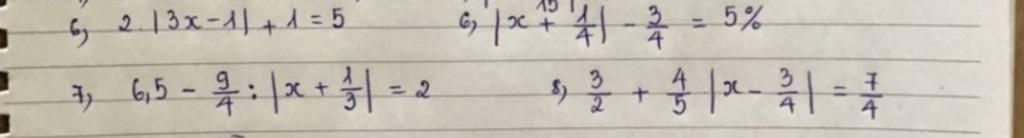 6, 2. |3x - 1| + 1 = 5
6, |x + 1/4| - 3/4 = 5%
7, 6,5 - 9/4 : |x + 1/3| = 2
8, 3/2 + 4/5 |x - 3/4| = 7/4